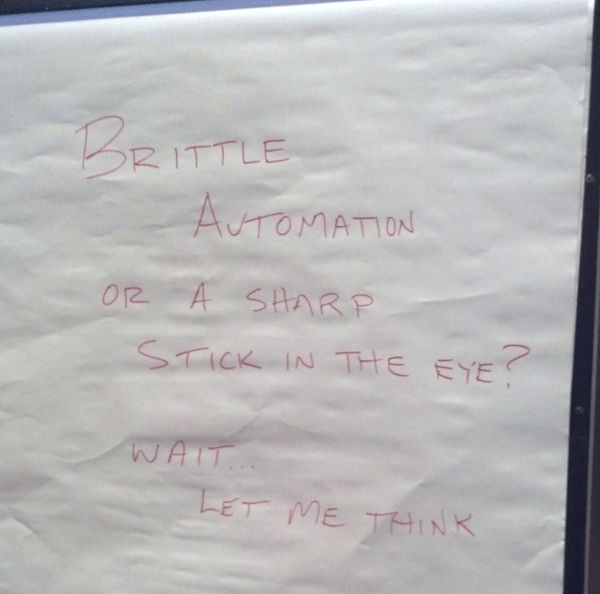 BRITTLE
AUTOMATION
OR A SHARP
STICK IN THE EYE?
WAIT...
LET ME THINK